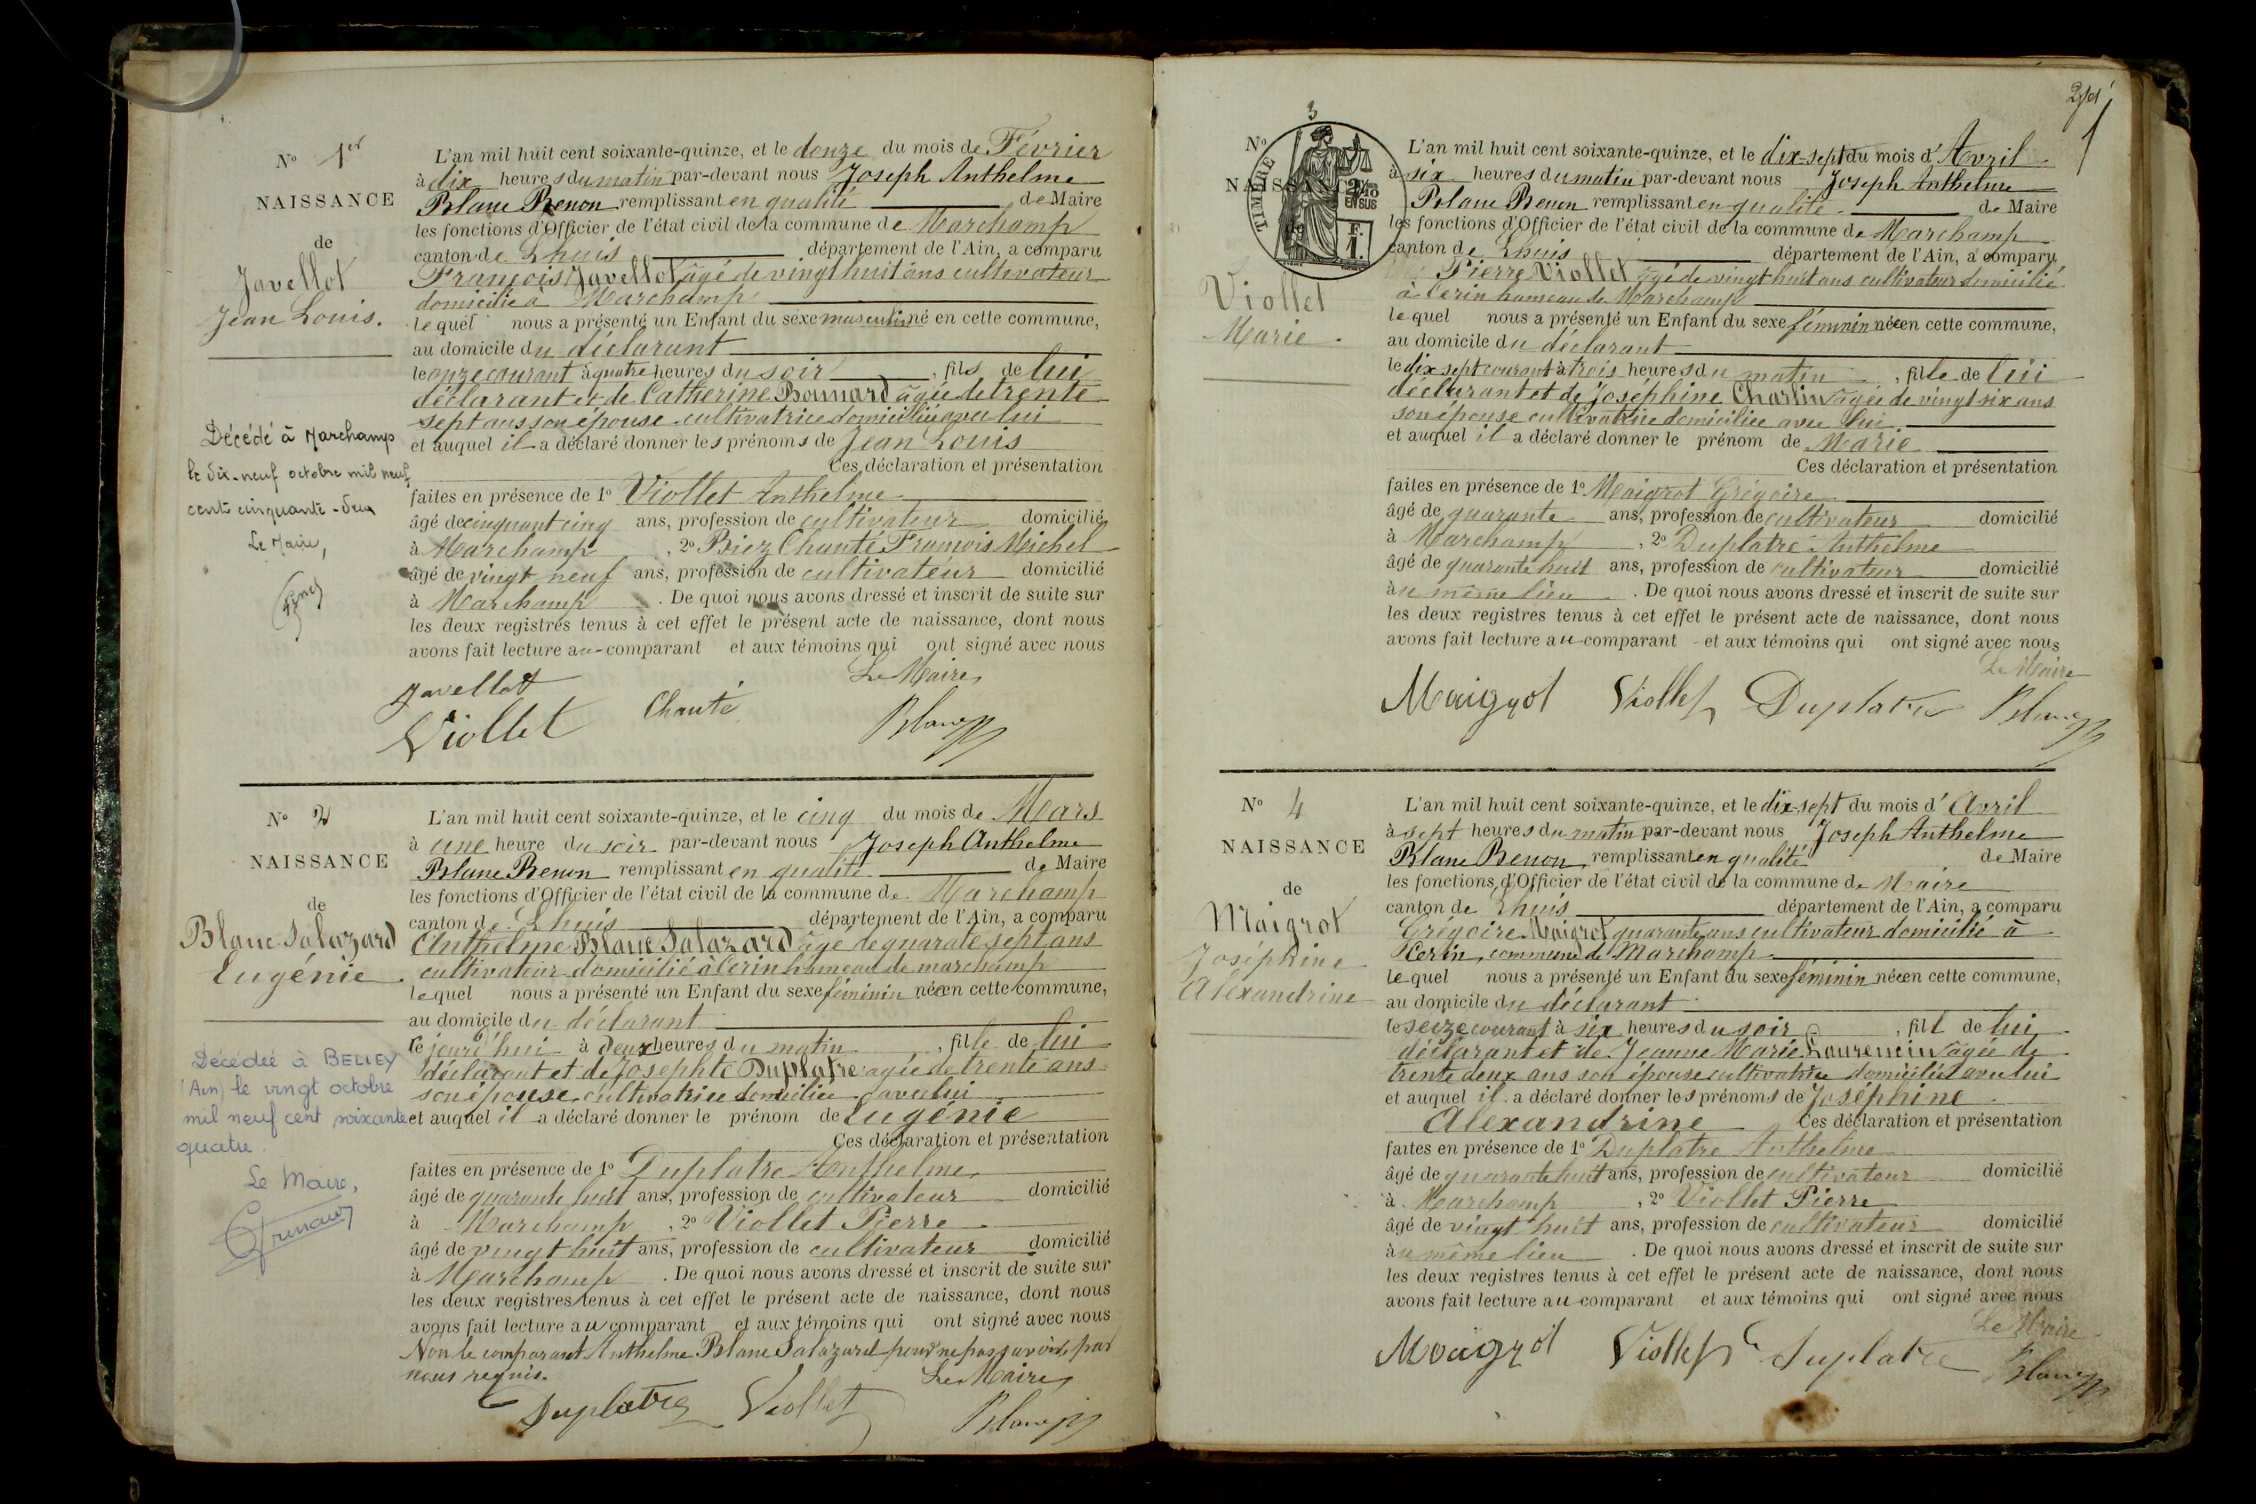 N° 1er
NAISSANCE
de
Javellot
Jean Louis.
Décédé à Marchamp
le dix-neuf octobre mil neuf
cent cinquante-deux
Le Maire,
L'an mil huit cent soixante-quinze, et le douze du mois de Février
à dix heures du matin par-devant nous Joseph Anthelme
Blanc Renon remplissant en qualité de Maire
les fonctions d'Officier de l'état civil de la commune de Marchamp
canton de Lhuis département de l'Ain, a comparu
François Javellot âgé de vingt huit ans cultivateur
domicilié à Marchamp
lequel nous a présenté un Enfant du sexe masculin né en cette commune,
au domicile du déclarant
le onze courant à quatre heures du soir, fils de lui
déclarant et de Catherine Bonnard âgée de trente
sept ans son épouse cultivatrice domiciliée avec lui
et auquel il a déclaré donner les prénoms de Jean Louis
Ces déclaration et présentation
faites en présence de 1° Viollet Anthelme
âgé de cinquant cinq ans, profession de cultivateur domicilié
à Marchamp, 2° Biez Chanté François Michel
âgé de vingt neuf ans, profession de cultivateur domicilié
à Marchamp. De quoi nous avons dressé et inscrit de suite sur
les deux registres tenus à cet effet le présent acte de naissance, dont nous
avons fait lecture au comparant et aux témoins qui ont signé avec nous
Le Maire
Javellot
Viollet Chanté Blanc
N° 2
NAISSANCE
de
Blanc Salazard
Eugénie
Décédée à BELLEY
(Ain) le vingt octobre
mil neuf cent soixante
quatre.
Le Maire,
L'an mil huit cent soixante-quinze, et le cinq du mois de Mars
à une heure du soir par-devant nous Joseph Anthelme
Blanc Renon remplissant en qualité de Maire
les fonctions d'Officier de l'état civil de la commune de Marchamp
canton de Lhuis département de l'Ain, a comparu
Anthelme Blanc Salazard âgé de quarate sept ans
cultivateur domicilié à Cerin hameau de marchamp
lequel nous a présenté un Enfant du sexe féminin née en cette commune,
au domicile du déclarant
le jourd'hui à deux heures du matin, fille de lui
déclarant et de Josephte Duplatre agée de trente ans
son épouse cultivatrice domiciliée avec lui
et auquel il a déclaré donner le prénom de Eugénie
Ces déclaration et présentation
faites en présence de 1° Duplatre Anthelme
âgé de quarante huit ans, profession de cultivateur domicilié
à Marchamp, 2° Viollet Pierre
âgé de vingt huit ans, profession de cultivateur domicilié
à Marchamp. De quoi nous avons dressé et inscrit de suite sur
les deux registres tenus à cet effet le présent acte de naissance, dont nous
avons fait lecture au comparant et aux témoins qui ont signé avec nous
Non le comparant Anthelme Blanc Salazard pour ne pas savoir, par
nous requis. Le Maire
Duplatre Viollet Blanc
N° 3
NAISSANCE
de
TIMBRE
2/10
EN SUS
F.
1.
Viollet
Marie
L'an mil huit cent soixante-quinze, et le dix-sept du mois d'Avril
à six heures du matin par-devant nous Joseph Anthelme
Blanc Renon remplissant en qualité de Maire
les fonctions d'Officier de l'état civil de la commune de Marchamp
canton de Lhuis département de l'Ain, a comparu
Pierre Viollet âgé de vingt huit ans cultivateur domicilié
à Cerin hameau de Marchamp
lequel nous a présenté un Enfant du sexe féminin née en cette commune,
au domicile du déclarant
le dix sept courant à trois heures du matin, fille de lui
déclarant et de joséphine Charlin âgée de vingt six ans
son épouse cultivatrice domiciliée avec lui
et auquel il a déclaré donner le prénom de Marie
Ces déclaration et présentation
faites en présence de 1° Maigrot Grégoire
âgé de quarante ans, profession de cultivateur domicilié
à Marchamp, 2° Duplatre Anthelme
âgé de quarante huit ans, profession de cultivateur domicilié
au même lieu. De quoi nous avons dressé et inscrit de suite sur
les deux registres tenus à cet effet le présent acte de naissance, dont nous
avons fait lecture au comparant et aux témoins qui ont signé avec nous
Le Maire
Maigrot Viollet Duplatre Blanc
N° 4
NAISSANCE
de
Maigrot
Joséphine
Alexandrine
L'an mil huit cent soixante-quinze, et le dix-sept du mois d'Avril
à sept heures du matin par-devant nous Joseph Anthelme
Blanc Renon remplissant en qualité de Maire
les fonctions d'Officier de l'état civil de la commune de Maire
canton de Lhuis département de l'Ain, a comparu
Grégoire Maigrot quarante ans cultivateur domicilié à
Cerin, commune de Marchamp
lequel nous a présenté un Enfant du sexe féminin née en cette commune,
au domicile du déclarant
le seize courant à six heures du soir, fill de lui
déclarant et de Jeanne Marie Laurencin âgée de
trente deux ans son épouse cultivatrice domiciliée avec lui
et auquel il a déclaré donner les prénoms de Joséphine
Alexandrine Ces déclaration et présentation
faites en présence de 1° Duplatre Anthelme
âgé de quarante huit ans, profession de cultivateur domicilié
à Marchamp, 2° Viollet Pierre
âgé de vingt huit ans, profession de cultivateur domicilié
au même lieu. De quoi nous avons dressé et inscrit de suite sur
les deux registres tenus à cet effet le présent acte de naissance, dont nous
avons fait lecture au comparant et aux témoins qui ont signé avec nous
Le Maire
Maigrot Viollet Duplatre Blanc